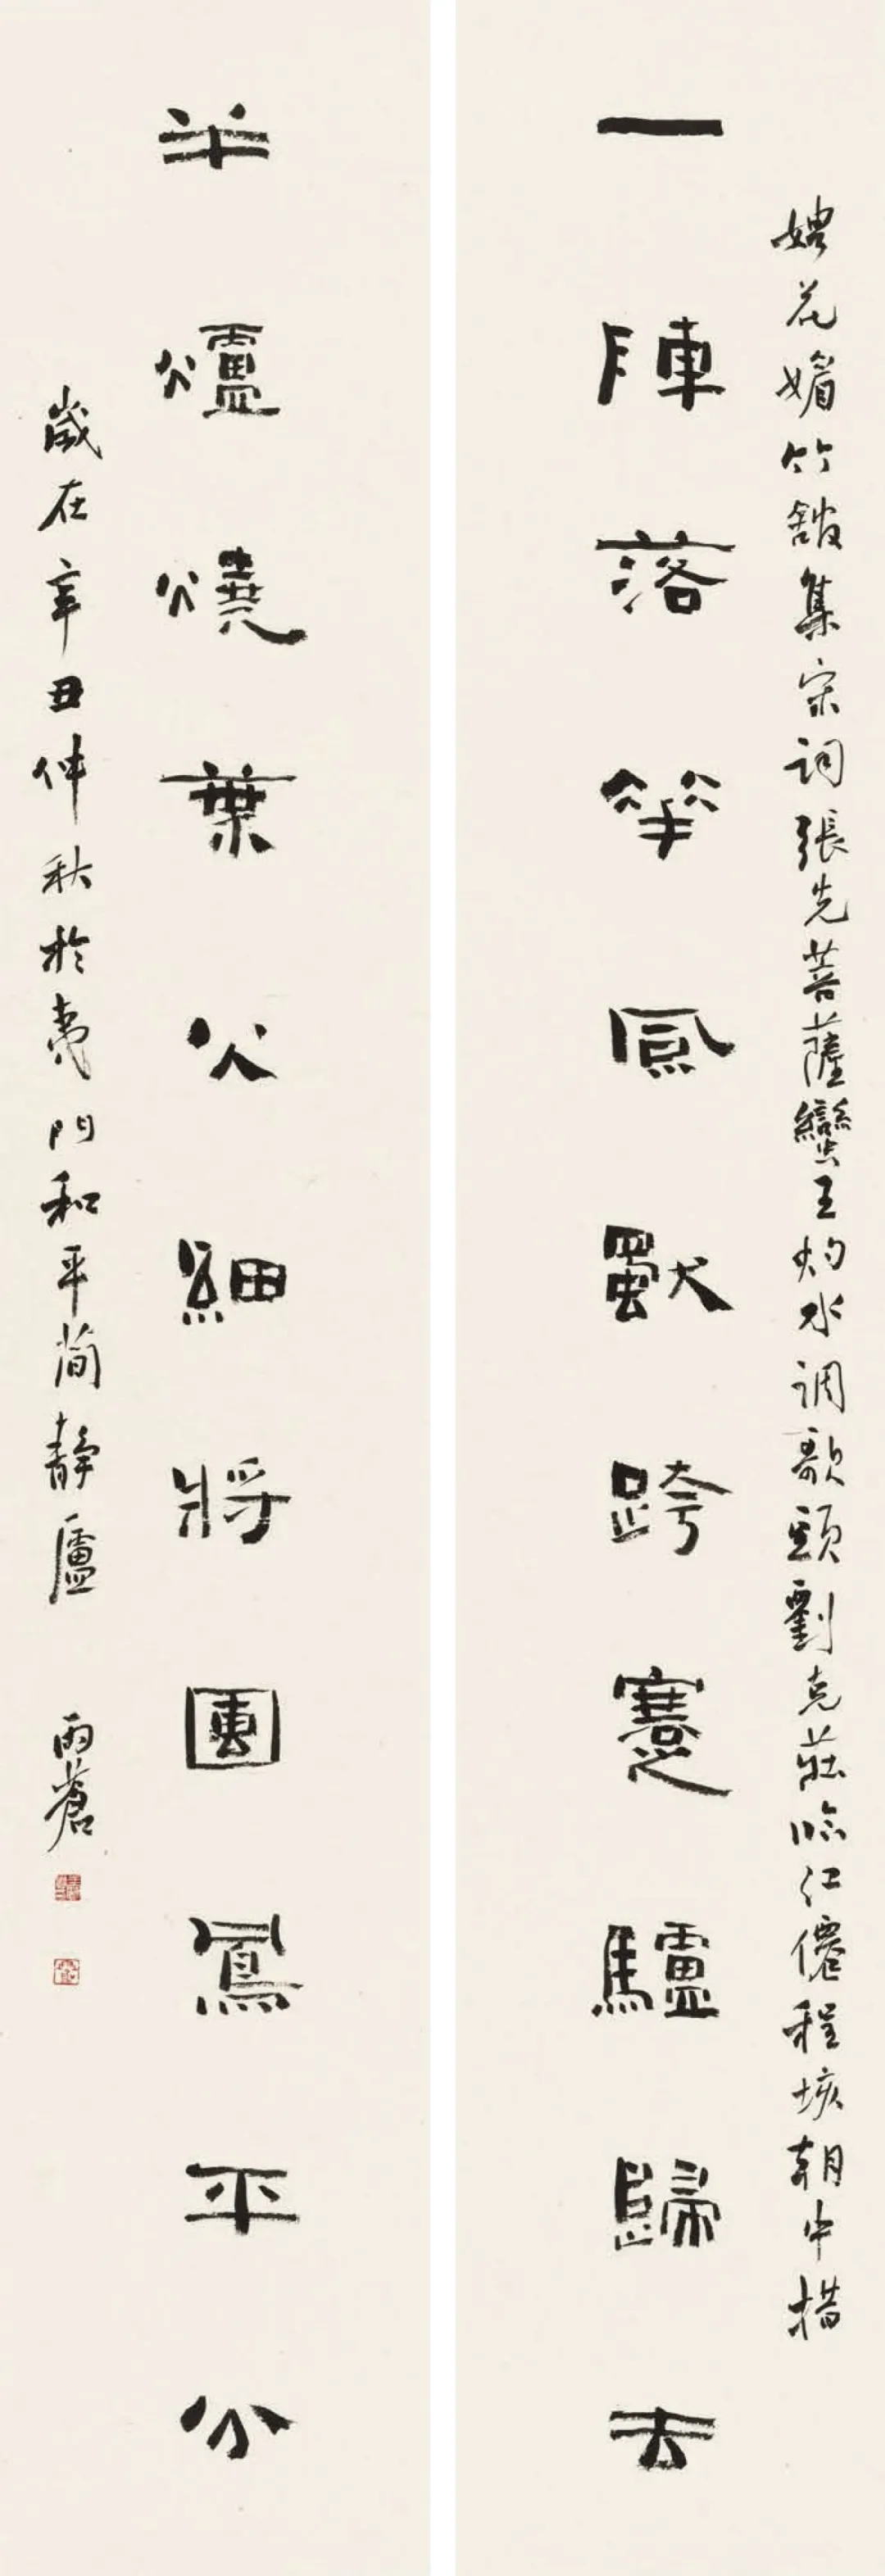 娉花媚竹館集宋詞張先菩薩蠻王灼水調歌頭劉克莊臨江僊程垓朝中措
一陣落花風獨跨蹇驢歸去
半爐燒葉火細將團鳳平分
歲在辛丑仲秋於夷門和平簡靜廬 雨蒼